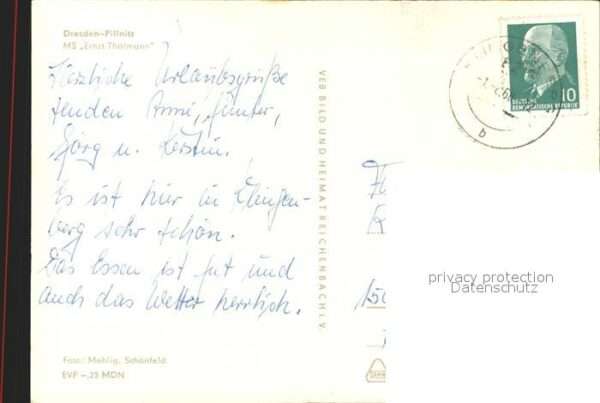 Dresden-Pillnitz
MS „Ernst Thälmann"
Herzliche Urlaubsgrüße
senden Anni, Günter,
Jörg u. Kerstin.
Es ist hier in Klingen-
berg sehr schön.
Das Essen ist gut und
auch das Wetter herrlich.
Foto: Mehlig, Schönfeld
EVP –,25 MDN
VEB BILD UND HEIMAT REICHENBACH I. V.
DEUTSCHE
DEMOKRATISCHE REPUBLIK
10
b
150
privacy protection
Datenschutz